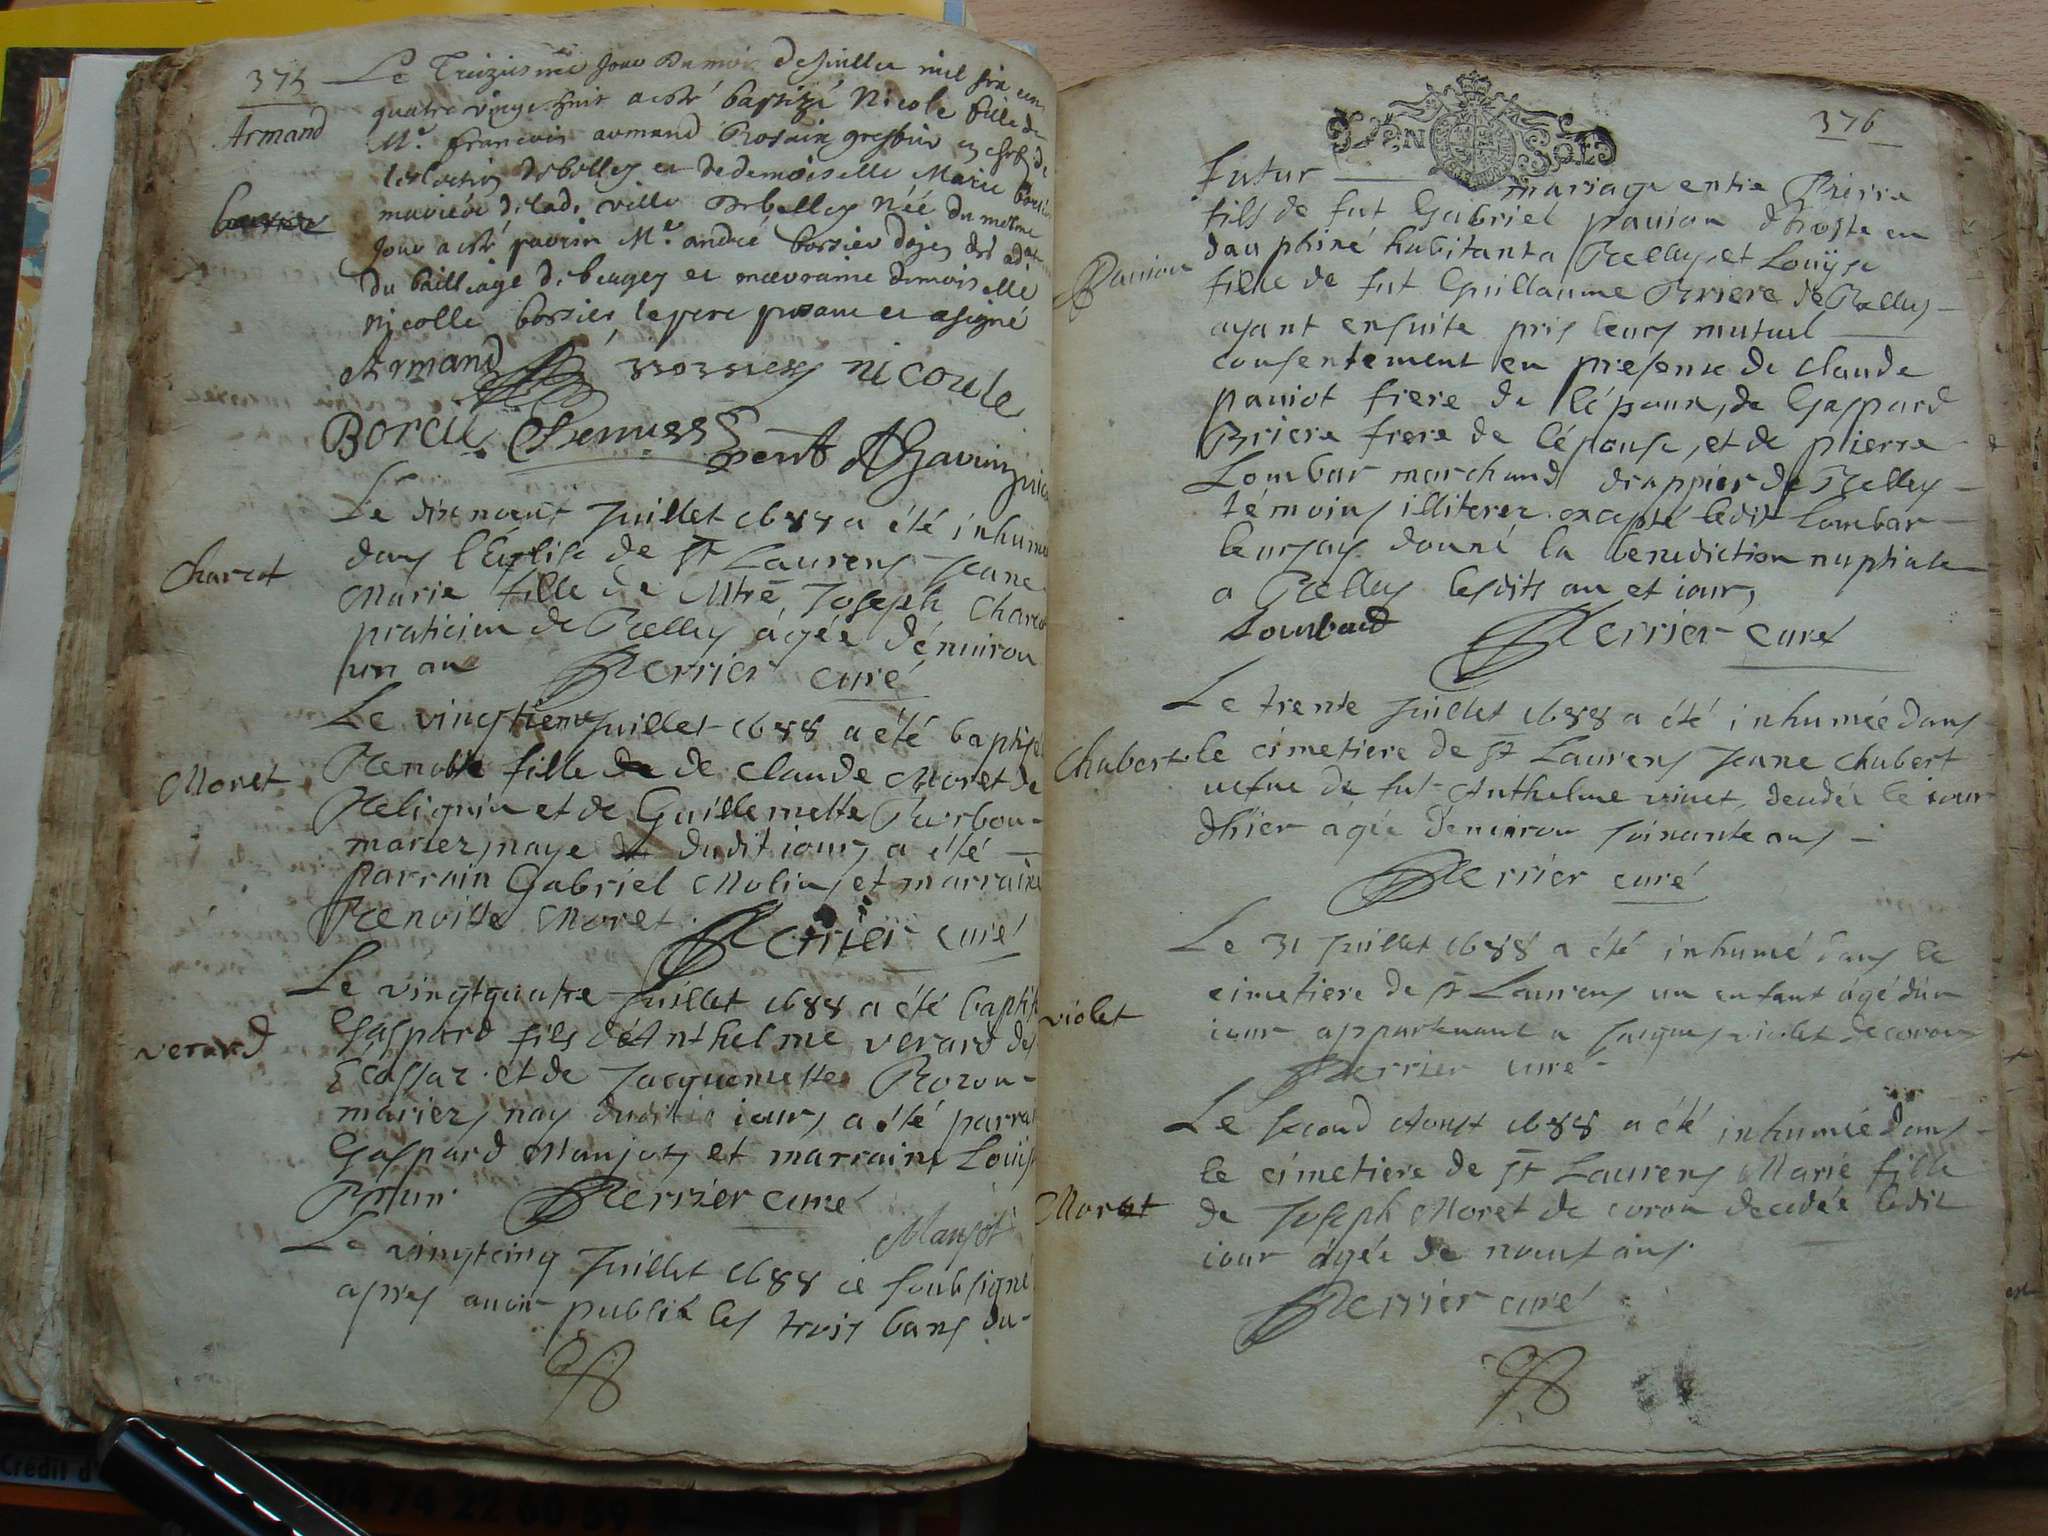 375
Le Treiziesme Jour du mois de Juillet mil six cen
quatre vingt huit a esté baptizé Nicole fille de
Armand
Mr. francois armand greffier en chef de
de belley et de demoiselle Marie
de lad. ville de belley Née du mesme
Jour a esté parrin Mr. andré bossier doyen des
du bailliage de beugey et marraine demoiselle
nicolle bossier, le pere presant et a signé
Armand nicoule
Le dixneuf Juillet 1688 a été inhumé
dans l'Eglise de St Laurens Jeane
Charcot
Marie fille de Mtre Joseph Charcot
praticien de Belley agée d'énuiron
un an Perrier curé
Le vingtieme Juillet 1688 a été baptisé
fille de de Claude Moret de
Moret
et de Guillemette
mariez, naye dudit iour, a été
parrain Gabriel Molin, et marraine
Benoitte Moret Perrier curé
Le vingtquatre Juillet 1688 a été baptisé
Gaspard fils d'Anthelme verard des
verard
Ecassaz et de Jacquemette Rozon
mariez, nay dudit iour, a été parra
Gaspard Manjot, et marraine Louise
Perrier curé
Manjot
Le vingtcinq Juillet 1688 ie soubsigné
apres auoir publié les trois bans du
376
futur mariage entre Pierre
fils de fut Gabriel pauiot d'hoste en
dauphiné habitant a Belley, et Louÿse
Pauiot
fille de fut Guillaume Briere de Belley
ayant ensuite pris leurs mutuel
consentement en presense de Claude
pauiot frere de l'époux, de Gaspard
Briere frere de l'épouse, et de pierre
Lombar marchand drappier de Belley
témoins illiterez excepté ledit Lombar
leur ay donné la benediction nuptiale
a Belley lesdits an et iour,
Lombard Perrier curé
Le trente Juillet 1688 a été inhumée dans
Chubert
le cimetiere de St Laurens Jeane Chubert
uefue de fut Anthelme vinet, decedée le iour
d'hier agée d'enuiron soixante ans
Perrier curé
Le 31 Juillet 1688 a été inhumé dans le
cimetiere de St Laurens un enfant agé d'un
violet
iour appartenant a Jacques violet de coron
Perrier curé
Le second Aoust 1688 a été inhumée dans
le cimetiere de St Laurens Marie fille
Moret
de Joseph Moret de coron decedée ledit
iour agée de neuf ans
Perrier curé
Crédit d'
04 74 22 60 59